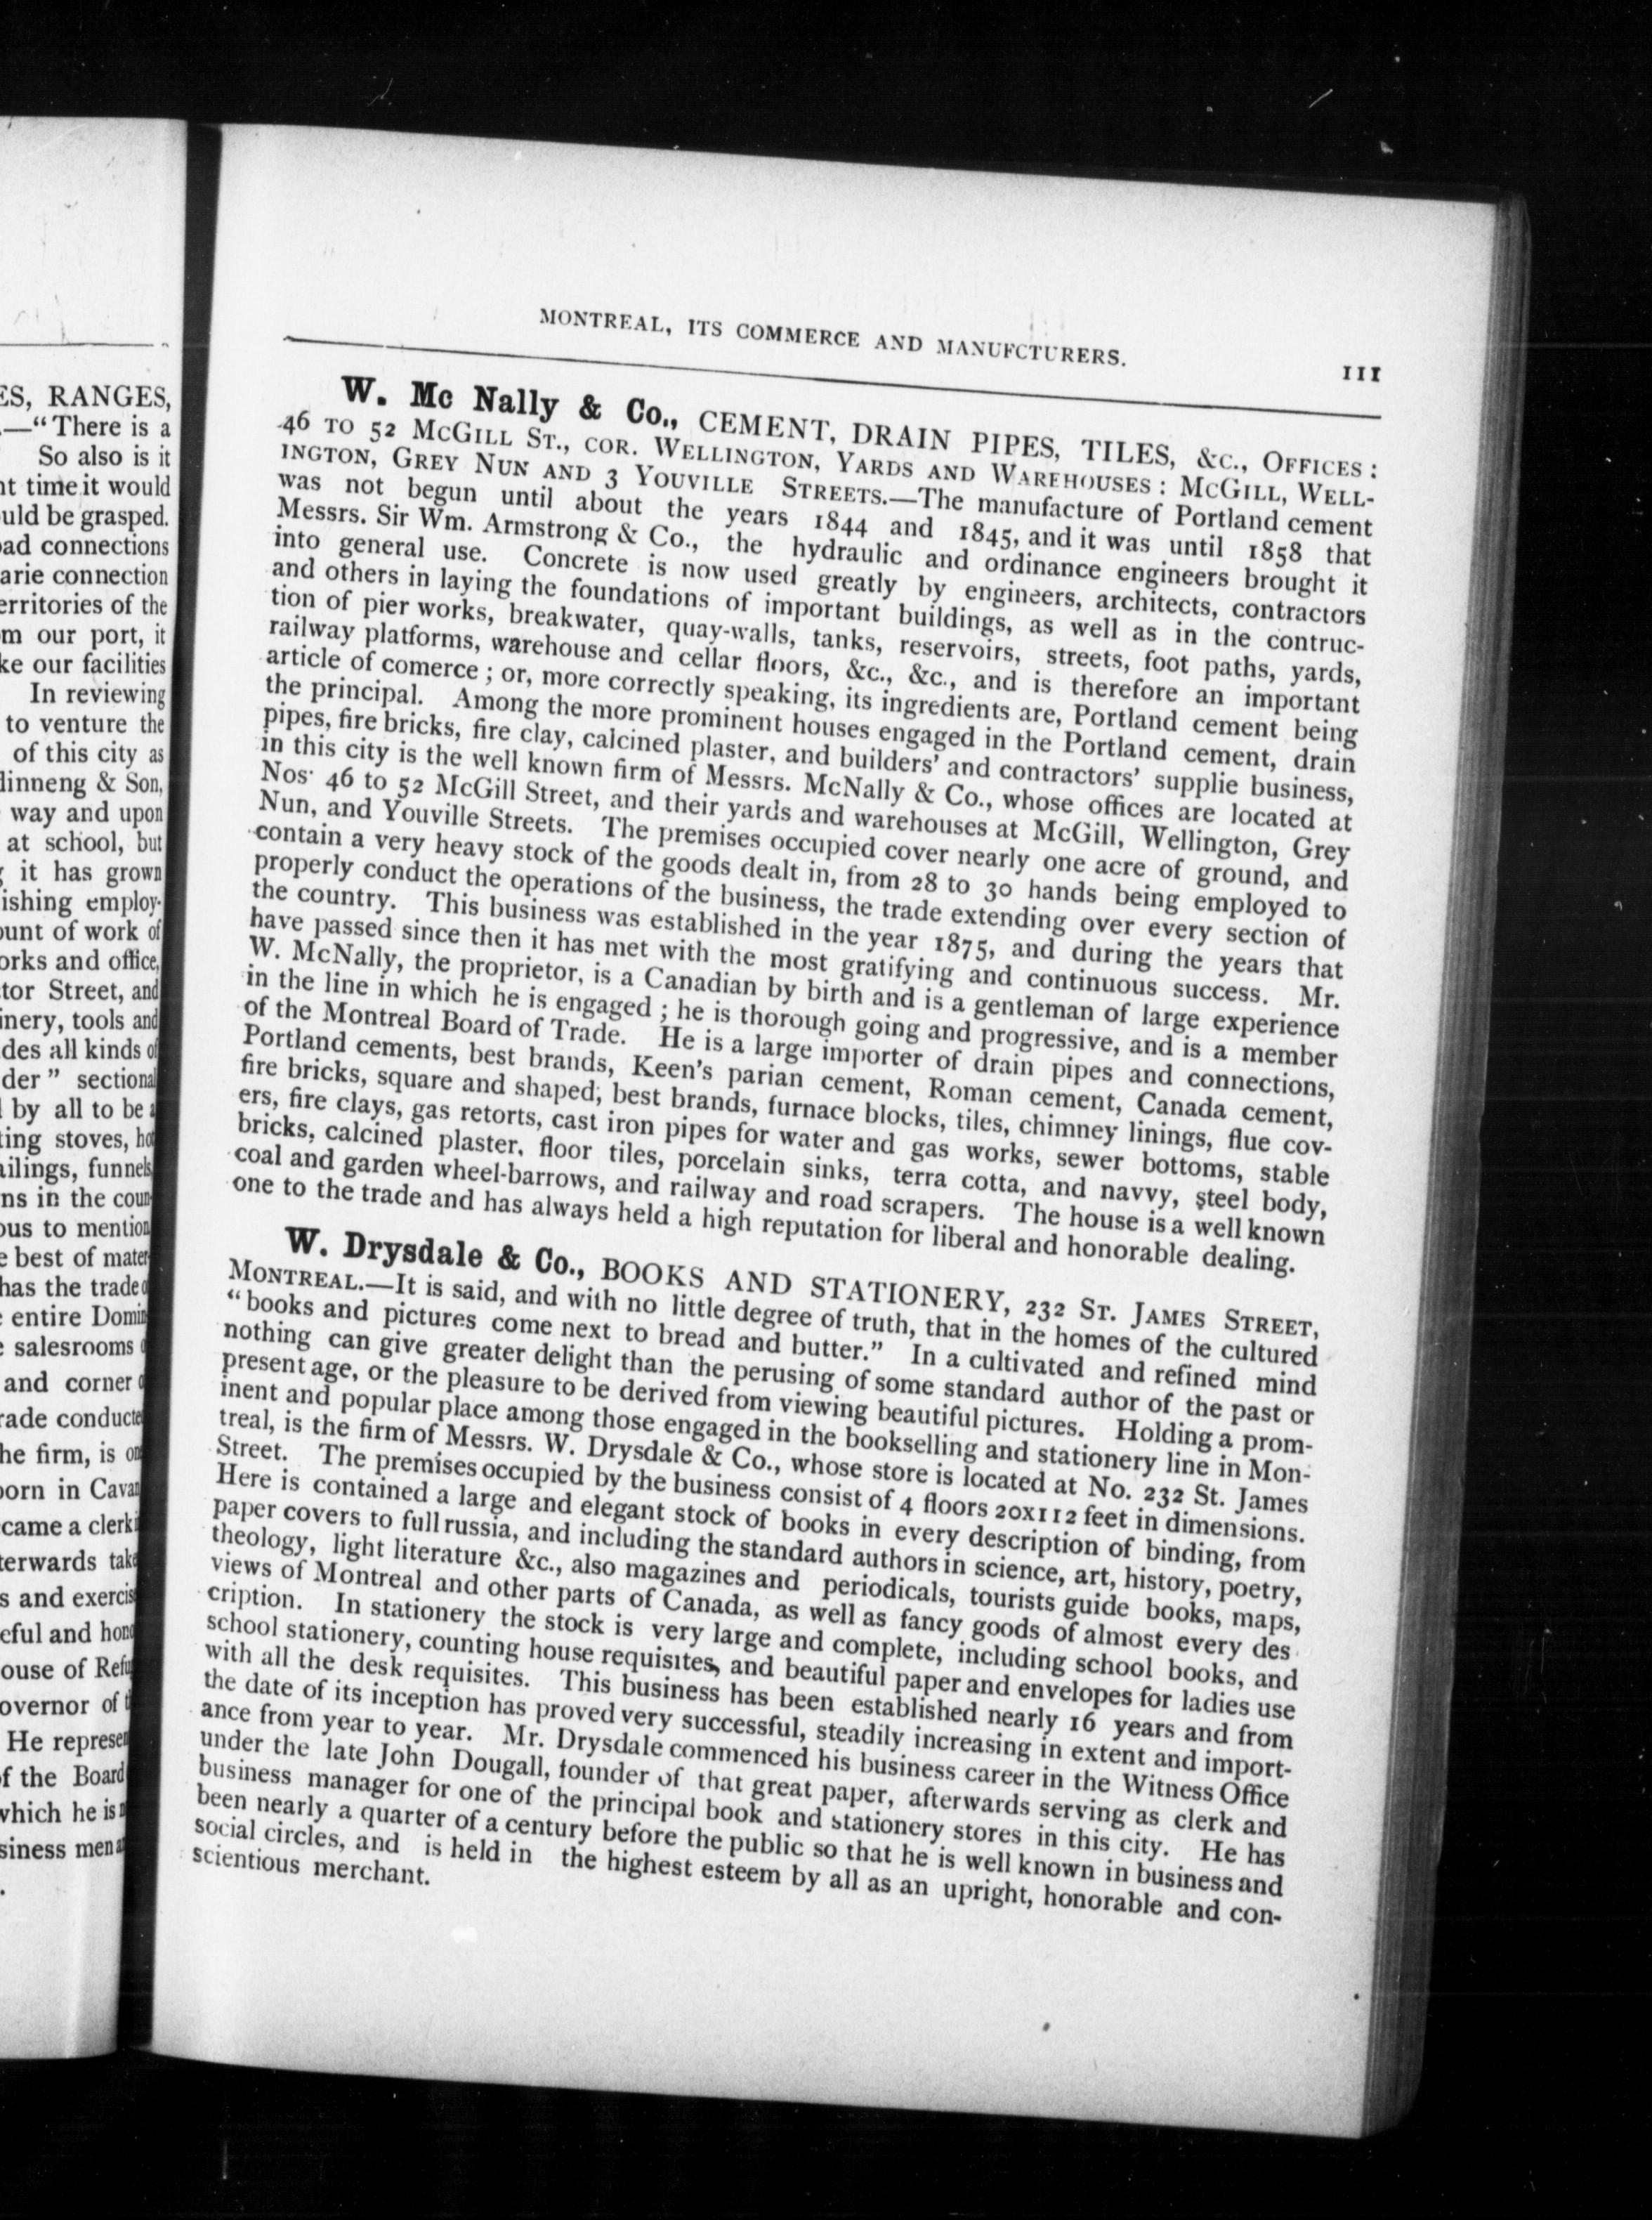 ES, RANGES,
.—“There is a
So also is it
nt time it would
uld be grasped.
oad connections
arie connection
erritories of the
om our port, it
ke our facilities
In reviewing
to venture the
of this city as
linneng & Son,
way and upon
at school, but
g it has grown
ishing employ-
ount of work of
orks and office,
tor Street, and
inery, tools and
des all kinds of
der” sectional
l by all to be a
ting stoves, hot
ailings, funnels,
ns in the coun-
ous to mention
e best of mater-
has the trade o
e entire Domin-
e salesrooms o
and corner o
rade conducted
he firm, is one
born in Cavan
came a clerk i
terwards take
s and exercise
eful and hono
ouse of Refu
overnor of t
He represen
of the Board
which he is
siness men an
MONTREAL, ITS COMMERCE AND MANUFCTURERS.
111
W. Mc Nally & Co., CEMENT, DRAIN PIPES, TILES, &c., OFFICES:
46 TO 52 MCGILL ST., COR. WELLINGTON, YARDS AND WAREHOUSES: MCGILL, WELL-
INGTON, GREY NUN AND 3 YOUVILLE STREETS.—The manufacture of Portland cement
was not begun until about the years 1844 and 1845, and it was until 1858 that
Messrs. Sir Wm. Armstrong & Co., the hydraulic and ordinance engineers brought it
into general use. Concrete is now used greatly by engineers, architects, contractors
and others in laying the foundations of important buildings, as well as in the contruc-
tion of pier works, breakwater, quay-walls, tanks, reservoirs, streets, foot paths, yards,
railway platforms, warehouse and cellar floors, &c., &c., and is therefore an important
article of comerce; or, more correctly speaking, its ingredients are, Portland cement being
the principal. Among the more prominent houses engaged in the Portland cement, drain
pipes, fire bricks, fire clay, calcined plaster, and builders’ and contractors’ supplie business,
in this city is the well known firm of Messrs. McNally & Co., whose offices are located at
Nos· 46 to 52 McGill Street, and their yards and warehouses at McGill, Wellington, Grey
Nun, and Youville Streets. The premises occupied cover nearly one acre of ground, and
contain a very heavy stock of the goods dealt in, from 28 to 30 hands being employed to
properly conduct the operations of the business, the trade extending over every section of
the country. This business was established in the year 1875, and during the years that
have passed since then it has met with the most gratifying and continuous success. Mr.
W. McNally, the proprietor, is a Canadian by birth and is a gentleman of large experience
in the line in which he is engaged; he is thorough going and progressive, and is a member
of the Montreal Board of Trade. He is a large importer of drain pipes and connections,
Portland cements, best brands, Keen’s parian cement, Roman cement, Canada cement,
fire bricks, square and shaped; best brands, furnace blocks, tiles, chimney linings, flue cov-
ers, fire clays, gas retorts, cast iron pipes for water and gas works, sewer bottoms, stable
bricks, calcined plaster, floor tiles, porcelain sinks, terra cotta, and navvy, steel body,
coal and garden wheel-barrows, and railway and road scrapers. The house is a well known
one to the trade and has always held a high reputation for liberal and honorable dealing.
W. Drysdale & Co., BOOKS AND STATIONERY, 232 ST. JAMES STREET,
MONTREAL.—It is said, and with no little degree of truth, that in the homes of the cultured
“books and pictures come next to bread and butter.” In a cultivated and refined mind
nothing can give greater delight than the perusing of some standard author of the past or
present age, or the pleasure to be derived from viewing beautiful pictures. Holding a prom-
inent and popular place among those engaged in the bookselling and stationery line in Mon-
treal, is the firm of Messrs. W. Drysdale & Co., whose store is located at No. 232 St. James
Street. The premises occupied by the business consist of 4 floors 20x112 feet in dimensions.
Here is contained a large and elegant stock of books in every description of binding, from
paper covers to full russia, and including the standard authors in science, art, history, poetry,
theology, light literature &c., also magazines and periodicals, tourists guide books, maps,
views of Montreal and other parts of Canada, as well as fancy goods of almost every des
cription. In stationery the stock is very large and complete, including school books, and
school stationery, counting house requisites, and beautiful paper and envelopes for ladies use
with all the desk requisites. This business has been established nearly 16 years and from
the date of its inception has proved very successful, steadily increasing in extent and import-
ance from year to year. Mr. Drysdale commenced his business career in the Witness Office
under the late John Dougall, founder of that great paper, afterwards serving as clerk and
business manager for one of the principal book and stationery stores in this city. He has
been nearly a quarter of a century before the public so that he is well known in business and
social circles, and is held in the highest esteem by all as an upright, honorable and con-
scientious merchant.